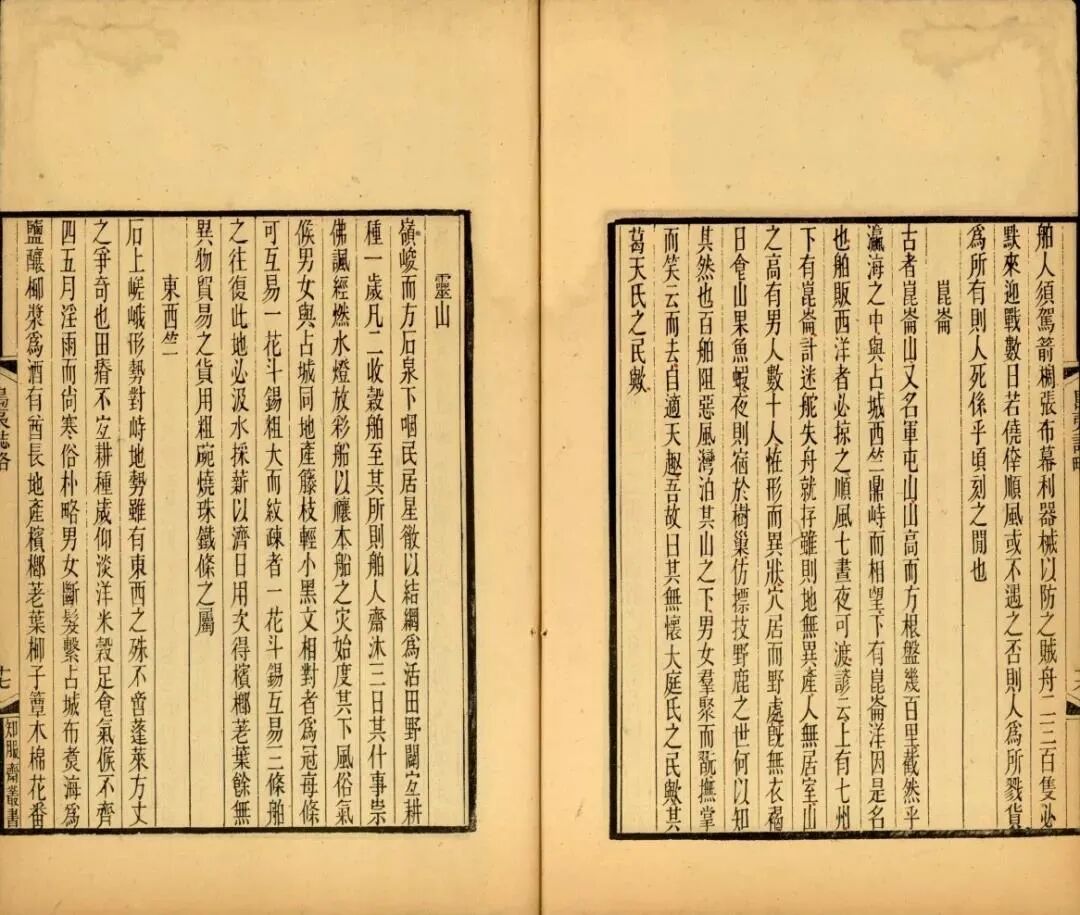 舶人須駕箭棚張布幕利器械以防之賊舟二三百隻必
然來迎戰數日若僥倖順風或不遇之否則人為所戮貨
為所有則人死係乎頃刻之間也
崑崙
古者崑崙山又名軍屯山山高而方根盤幾百里截然乎
瀛海之中與占城西竺鼎峙而相望下有崑崙洋因是名
也舶販西洋者必掠之順風七晝夜可渡諺云上有七州
下有崑崙計迷舵失舟就存雖則地無異產人無居室山
之高有男人數十人恠形而異狀穴居而野處旣無衣褐
日食山果魚蝦夜則宿於樹巢仿摽技野鹿之世何以知
其然也百舶阻惡風灣泊其山之下男女羣聚而翫撫掌
而笑云而去自適天趣吾故曰其無懷大庭氏之民歟其
葛天氏之民歟
靈山
嶺峻而方石泉下咽民居星散以結網為活田野闢宜耕
種一歲凡二收穀舶至其所則舶人齋沐三日其什事祟
佛諷經燃水燈放彩船以禳本船之灾始度其下風俗氣
候男女與占城同地產籐枝輕小黑文相對者為冠每條
可互易一花斗錫粗大而紋疎者一花斗錫互易三條舶
之往復此地必汲水採薪以濟日用次得檳榔荖葉餘無
異物貿易之貨用粗碗燒珠鐵條之屬
東西竺
石上嵯峨形勢對峙地勢雖有東西之殊不啻蓬萊方丈
之爭奇也田瘠不宜耕種歲仰淡洋米穀足食氣候不齊
四五月淫雨而尚寒俗朴略男女斷髮繫占城布煑海為
鹽釀椰漿為酒有酋長地產檳榔荖葉椰子簟木棉花番
島夷誌略
十七
知服齋叢書